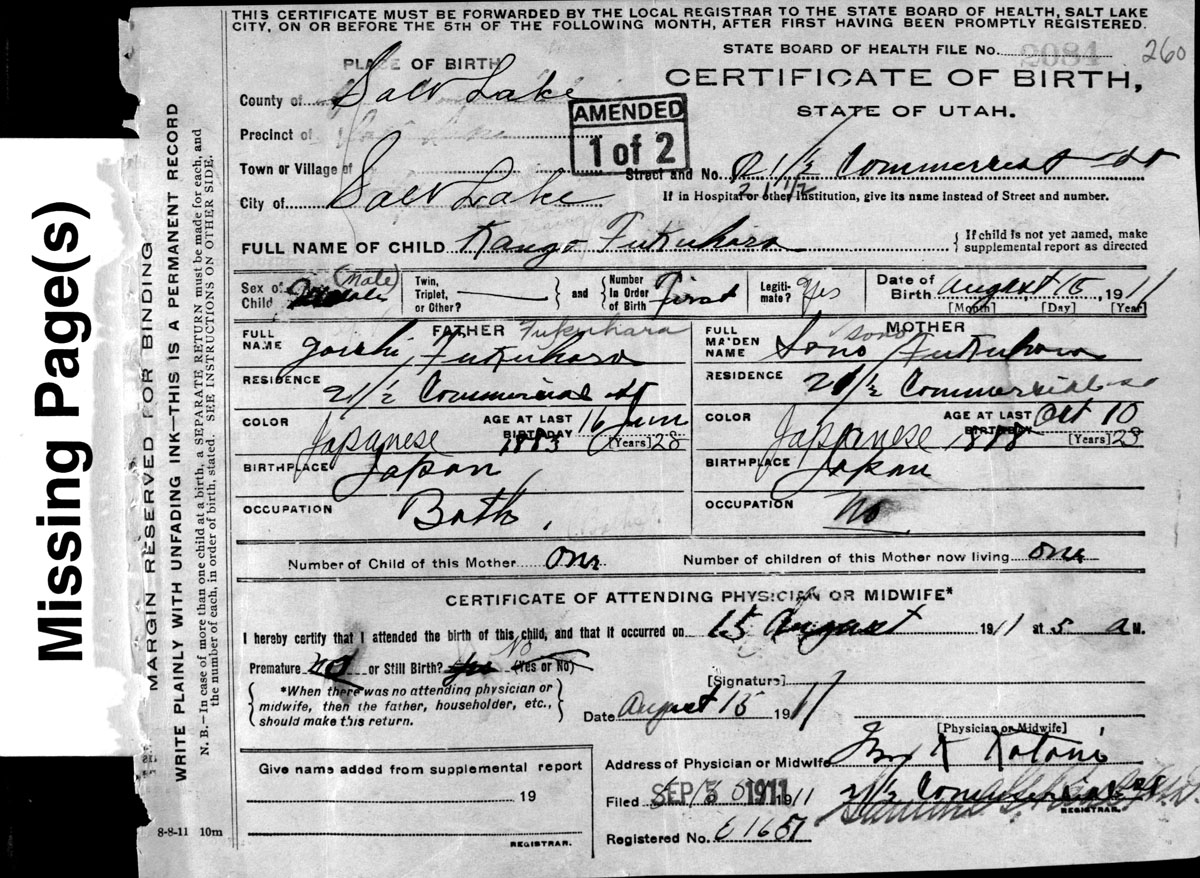 THIS CERTIFICATE MUST BE FORWARDED BY THE LOCAL REGISTRAR TO THE STATE BOARD OF HEALTH, SALT LAKE
CITY, ON OR BEFORE THE 5TH OF THE FOLLOWING MONTH, AFTER FIRST HAVING BEEN PROMPTLY REGISTERED.
STATE BOARD OF HEALTH FILE No. 2084 260
PLACE OF BIRTH
CERTIFICATE OF BIRTH,
STATE OF UTAH.
County of Salt Lake
AMENDED
1 of 2
Precinct of
Town or Village of
Street and No. 21½ Commercial St
21 1/2
City of Salt Lake
If in Hospital or other Institution, give its name instead of Street and number.
FULL NAME OF CHILD Kango Fukuhara
If child is not yet named, make
supplemental report as directed
Sex of Child (Male)
Twin, Triplet, or Other?
and
Number In Order of Birth First
Legiti-mate? Yes
Date of Birth August 15, 1911
[Month] [Day] [Year]
FATHER Fukuhara
FULL NAME Fukuhara
RESIDENCE 21½ Commercial St
COLOR Japanese
AGE AT LAST BIRTHDAY 16 Jun 1883 [Years] 28
BIRTHPLACE Japan
OCCUPATION Bath.
MOTHER
FULL MAIDEN NAME Sono Fukuhara
Sono
RESIDENCE 21½ Commercial St
COLOR Japanese
AGE AT LAST BIRTHDAY Oct 10 [Years] 23
BIRTHPLACE Japan
OCCUPATION No
Number of Child of this Mother One
Number of children of this Mother now living One
CERTIFICATE OF ATTENDING PHYSICIAN OR MIDWIFE*
I hereby certify that I attended the birth of this child, and that it occurred on 15 August 1911 at 5 a M.
Premature no or Still Birth? No (Yes or No)
[Signature]
*When there was no attending physician or
midwife, then the father, householder, etc.,
should make this return.
Date August 15 1911
[Physician or Midwife]
Give name added from supplemental report
19
REGISTRAR.
Address of Physician or Midwife K Kotani
21½ Commercial St
Filed SEP 5 1911 1911
REGISTRAR.
Registered No. E1651
8-8-11 10m
MARGIN RESERVED FOR BINDING
WRITE PLAINLY WITH UNFADING INK—THIS IS A PERMANENT RECORD
N. B.—In case of more than one child at a birth, a SEPARATE RETURN must be made for each, and
the number of each, in order of birth, stated. SEE INSTRUCTIONS ON OTHER SIDE.
Missing Page(s)